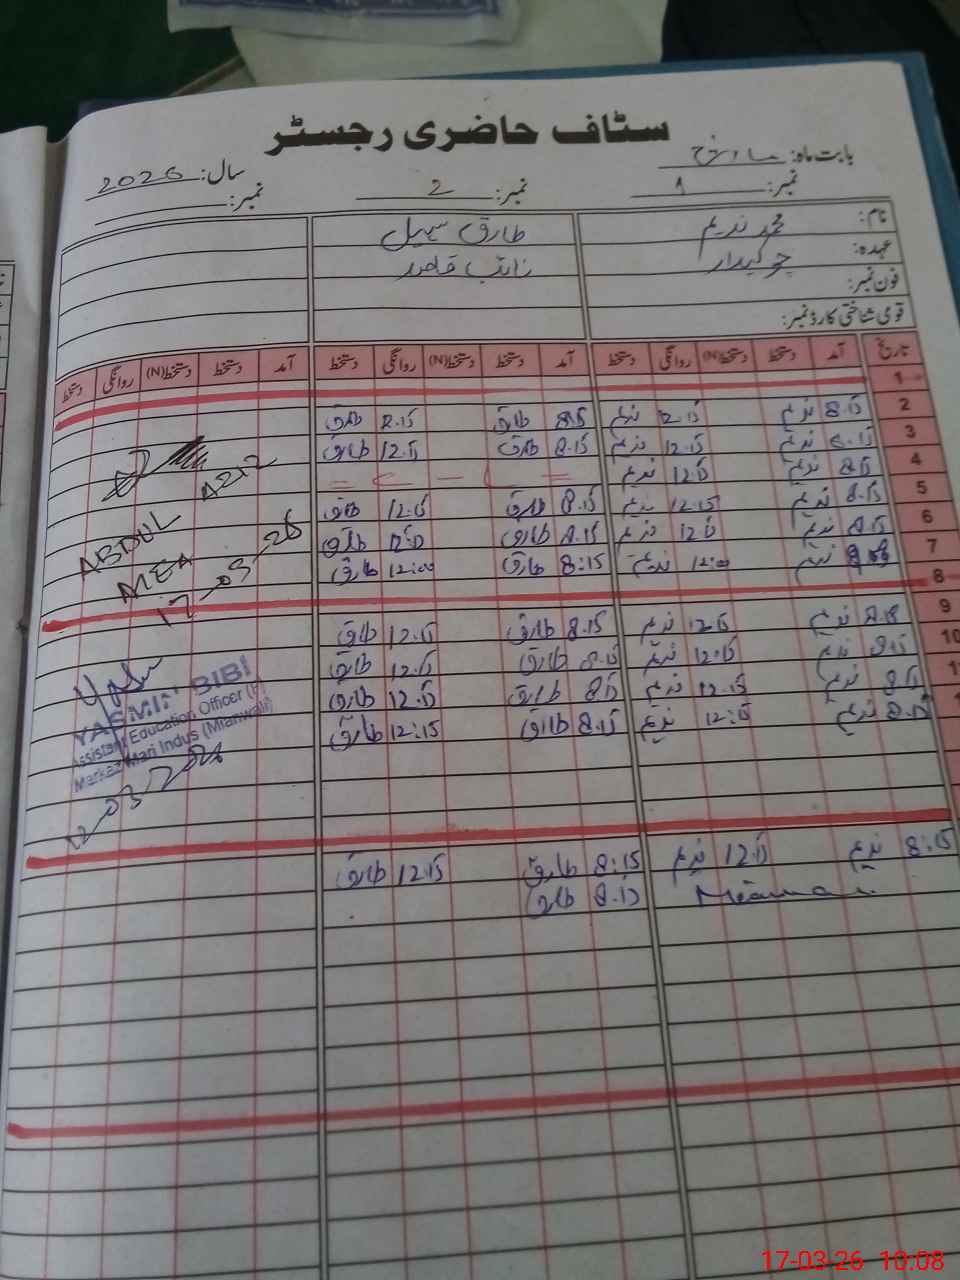 سٹاف حاضری رجسٹر
بابت ماہ: مارچ سال: 2026
نمبر: 1 نمبر: 2 نمبر:
نام: محمد ندیم طارق سہیل
عہدہ: چوکیدار نائب قاصد
فون نمبر:
قومی شناختی کارڈ نمبر:
تاریخ آمد دستخط دستخط(N) روانگی دستخط آمد دستخط دستخط(N) روانگی دستخط آمد دستخط دستخط(N) روانگی دستخط
1
2 8.15 ندیم 12.15 ندیم 8.15 طارق 12.15 طارق
3 8.15 ندیم 12.15 ندیم 8.15 طارق 12.15 طارق
4 8.15 ندیم 12.15 ندیم
5 8.15 ندیم 12.15 ندیم 8.15 طارق 12.15 طارق
6 8.15 ندیم 12.15 ندیم 8.15 طارق 12:15 طارق
7 ندیم 12:00 ندیم 8:15 طارق 12:00 طارق
8
9 8.15 ندیم 12.15 ندیم 8.15 طارق 12.15 طارق
10 8.15 ندیم 12.15 ندیم 8.15 طارق 12.15 طارق
8.15 ندیم 12.15 ندیم 8.15 طارق 12.15 طارق
8.15 ندیم 12:15 ندیم 8.15 طارق 12:15 طارق
8:15 ندیم 12.15 ندیم 8:15 طارق 12.15 طارق
8.15 طارق
ABDUL AZIZ
MEA
17-03-26
YASMIN BIBI
Assistant Education Officer (F)
Markaz Mari Indus (Mianwali)
12/03/2026
17-03-26 10:08